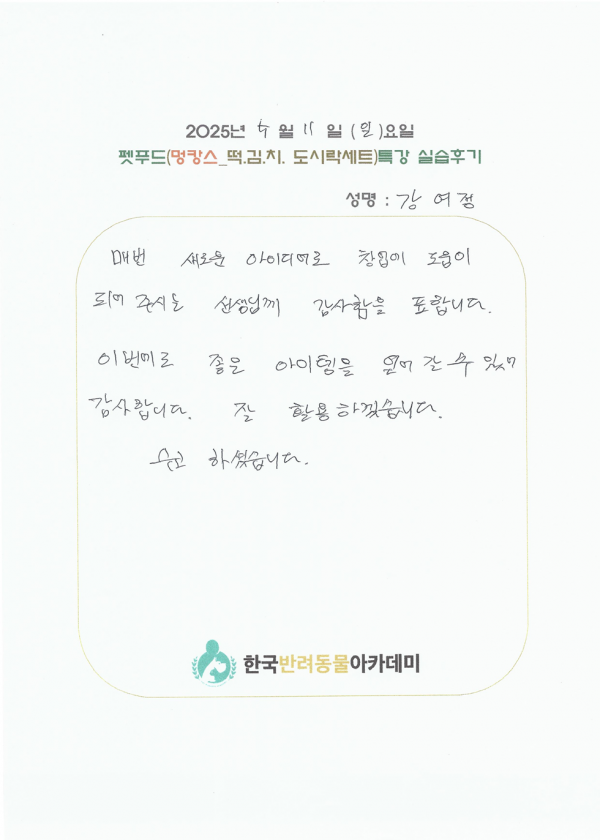 2025년 5월 11일 (일)요일
펫푸드(멍캉스_떡.김.치. 도시락세트)특강 실습후기
성명 : 강 여정
매번 새로운 아이디어로 창업에 도움이
되어 주시는 선생님께 감사함을 표합니다.
이번에도 좋은 아이템을 얻어 갈 수 있어
감사합니다. 잘 활용하겠습니다.
수고 하셨습니다.
한국반려동물아카데미